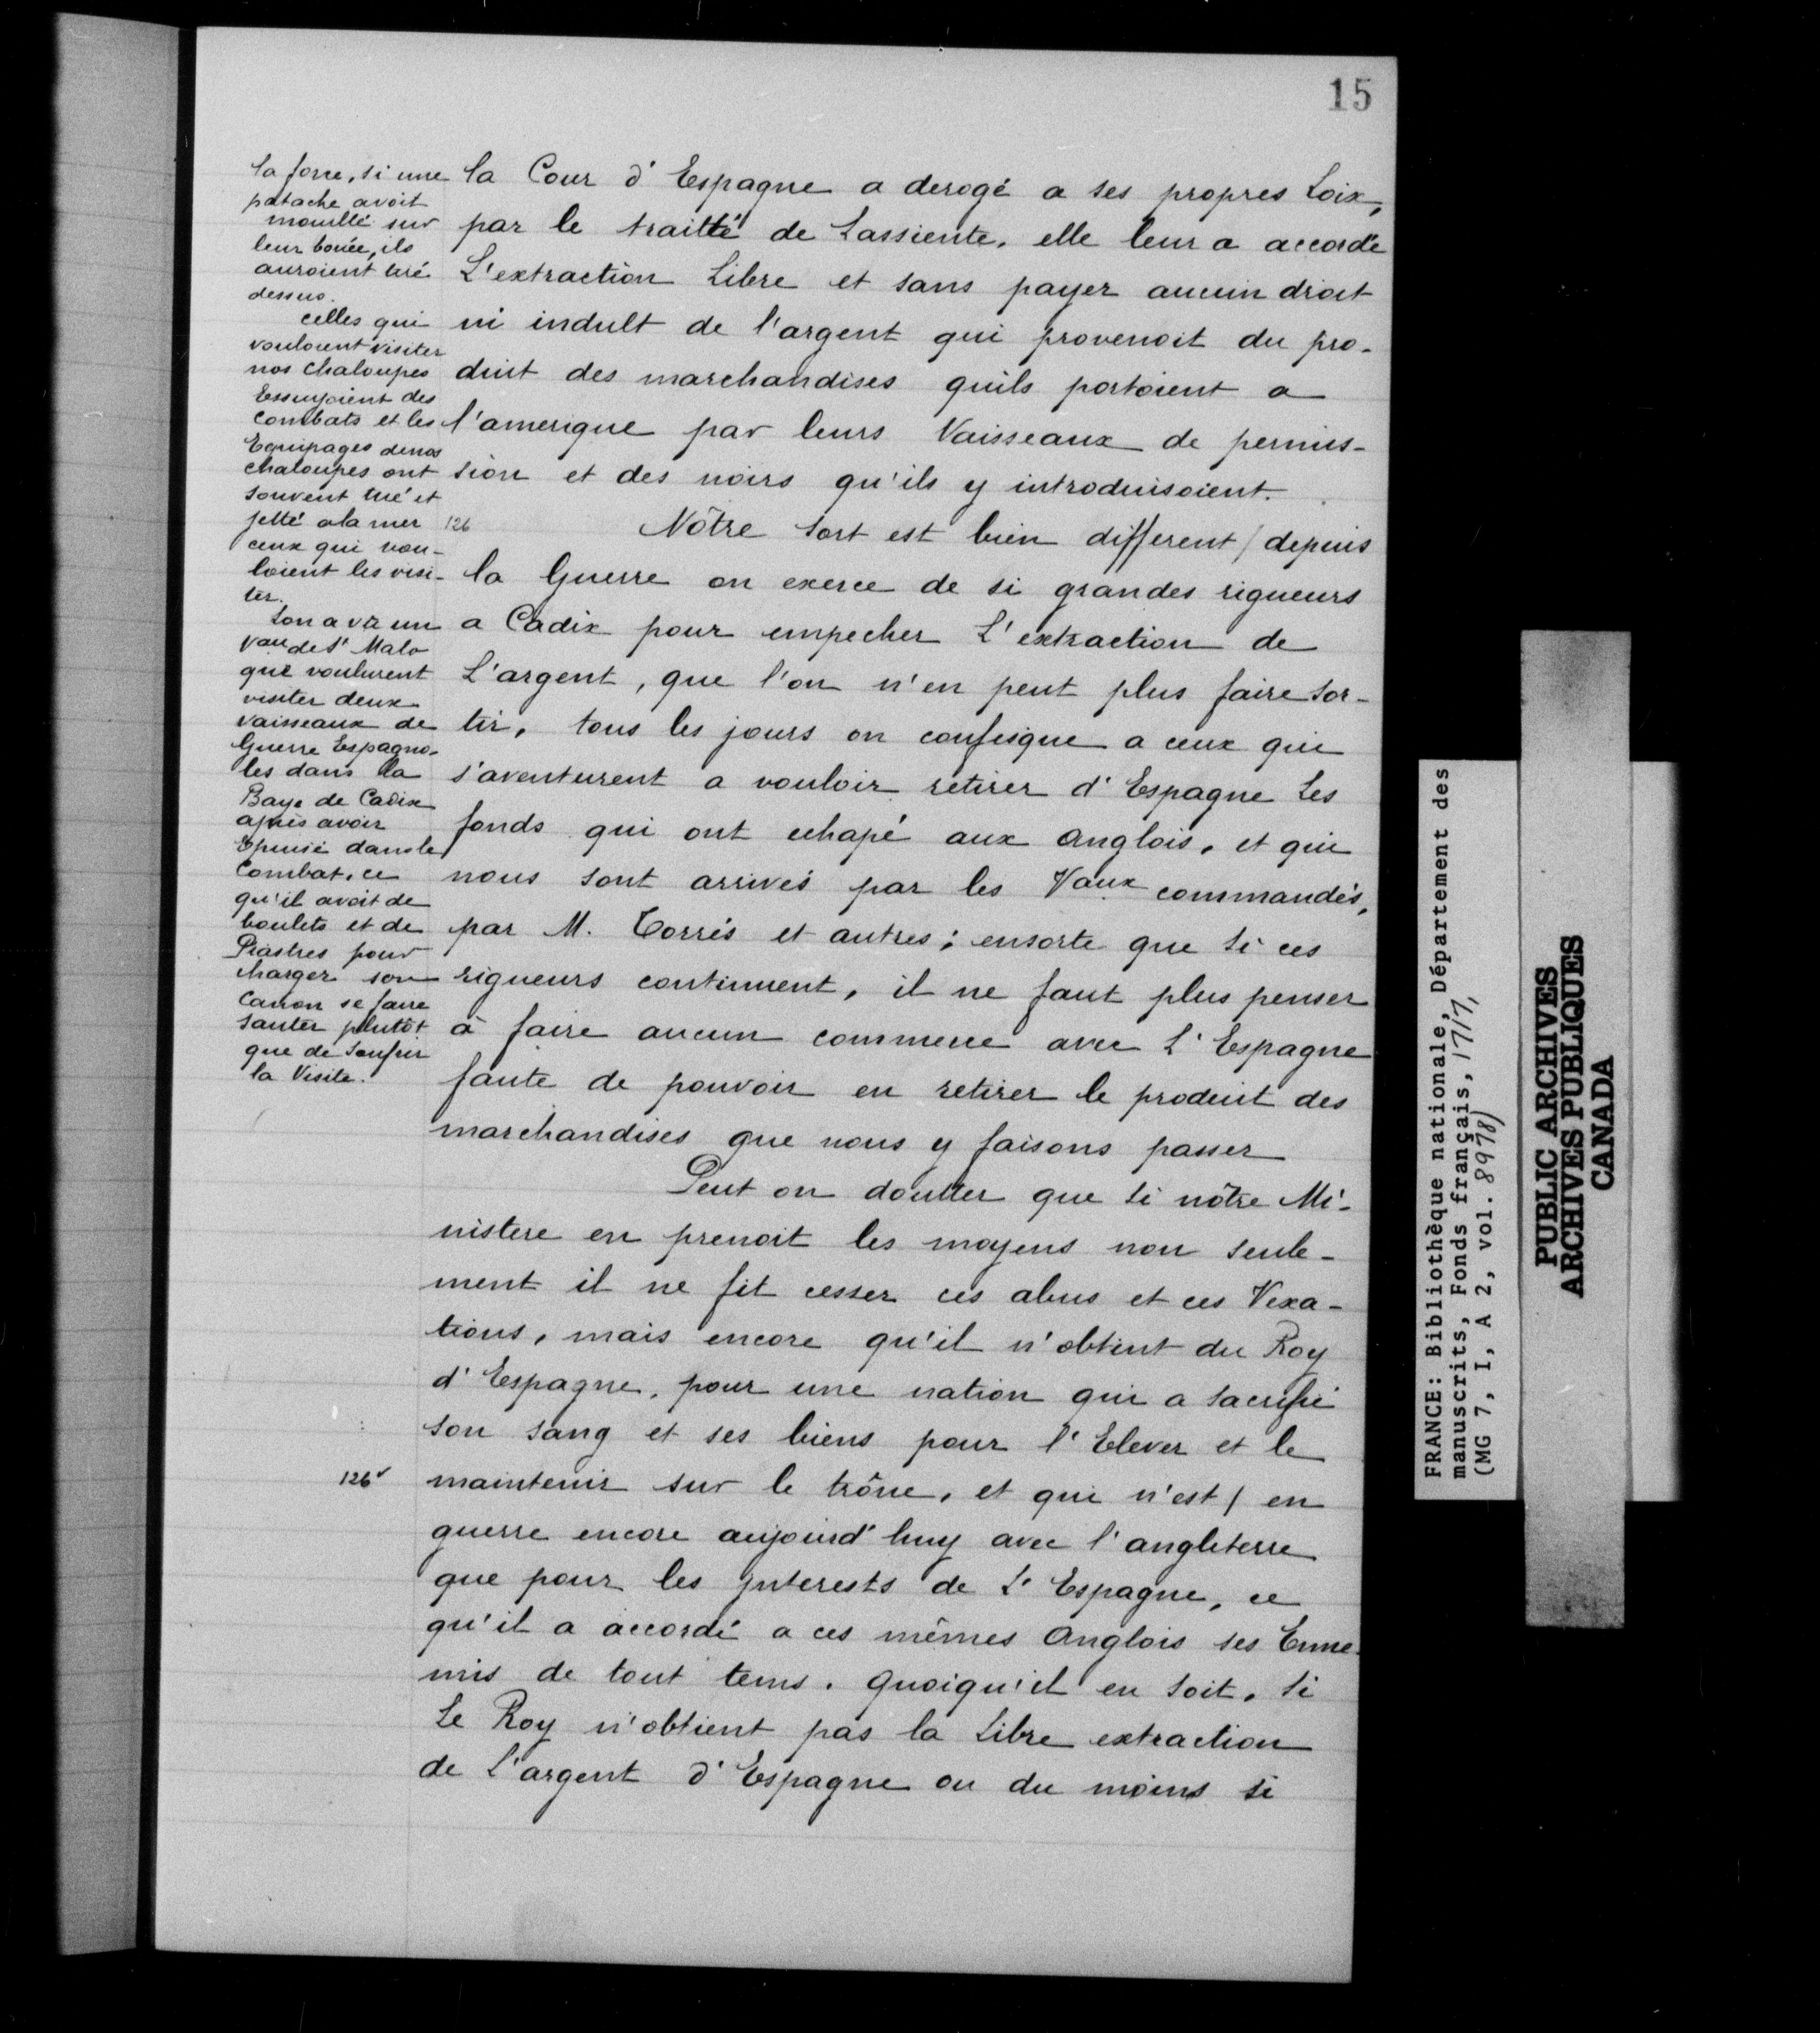 15
la force, si une
patache avoit
mouillé sur
leur bouée, ils
auroient tiré
dessus.
celles qui
vouloient visiter
nos chaloupes
Essuyoient des
combats et les
Equipages de nos
chaloupes ont
souvent tué et
jetté a la mer
ceux qui vou-
loient les visi-
ter.
Lon a vu un
Vau de St Malo
que voulurent
visiter deux
vaisseaux de
Guerre Espagno-
les dans la
Baye de Cadix
après avoir
Epuisé dans le
Combat, ce
qu'il avoit de
boulets et de
Piastres pour
charger son
Canon se faire
sauter plutôt
que de soufrir
la Visite.
la Cour d'Espagne a derogé a ses propres Loix,
par le traitté de Lassiente, elle leur a accordé
L'extraction Libre et sans payer aucun droit
ni indult de l'argent qui provenoit du pro-
duit des marchandises quils portoient a
l'amerique par leurs Vaisseaux de permis-
sion et des noirs qu'ils y introduisoient.
126 Nôtre sort est bien different / depuis
la Guerre on exerce de si grandes rigueurs
a Cadix pour empecher L'extraction de
L'argent, que l'on n'en peut plus faire sor-
tir, tous les jours on confisque a ceux qui
s'aventurent a vouloir retirer d'Espagne Les
fonds qui ont echapé aux Anglois, et qui
nous sont arrivés par les Vaux commandés,
par M. Torrés et autres; ensorte que si ces
rigueurs continuent, il ne faut plus penser
à faire aucun commerce avec L'Espagne
faute de pouvoir en retirer le produit des
marchandises que nous y faisons passer
Peut on doutter que si nôtre Mi-
nistere en prenoit les moyens non seule-
ment il ne fit cesser ces abus et ces Vexa-
tions, mais encore qu'il n'obtint du Roy
d'Espagne, pour une nation qui a sacrifié
son sang et ses biens pour l'Elever et le
126v maintenir sur le trône, et qui n'est / en
guerre encore aujourd'huy avec l'angleterre
que pour les Interests de L'Espagne, ce
qu'il a accordé a ces mêmes Anglois ses Enne-
mis de tout tems. Quoiqu'il en soit, si
Le Roy n'obtient pas la Libre extraction
de L'argent d'Espagne ou du moins si
FRANCE: Bibliothèque nationale, Département des
manuscrits, Fonds français, 1717,
(MG 7, I, A 2, vol. 8978)
PUBLIC ARCHIVES
ARCHIVES PUBLIQUES
CANADA